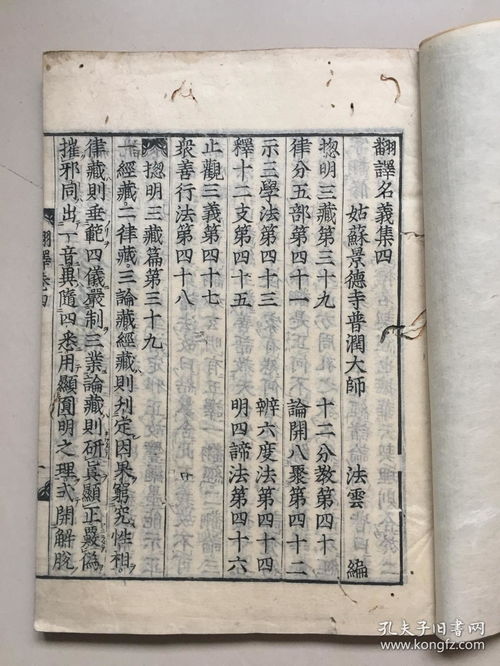 翻譯名義集四
姑蘇景德寺普潤大師 法雲 編
揔明三藏第三十九 十二分教第四十
律分五部第四十一 論開八聚第四十二
示三學法第四十三 辨六度法第四十四
釋十二支第四十五 明四諦法第四十六
止觀三義第四十七
衆善行法第四十八
揔明三藏篇第三十九
一經藏二律藏三論藏經藏則刊定因果窮究性相
律藏則垂範四儀嚴制三業論藏則研真顯正覈偽
摧邪同出一音異隨四悉用顯圓明之理式開解脫
孔夫子旧书网
www.kongfz.com